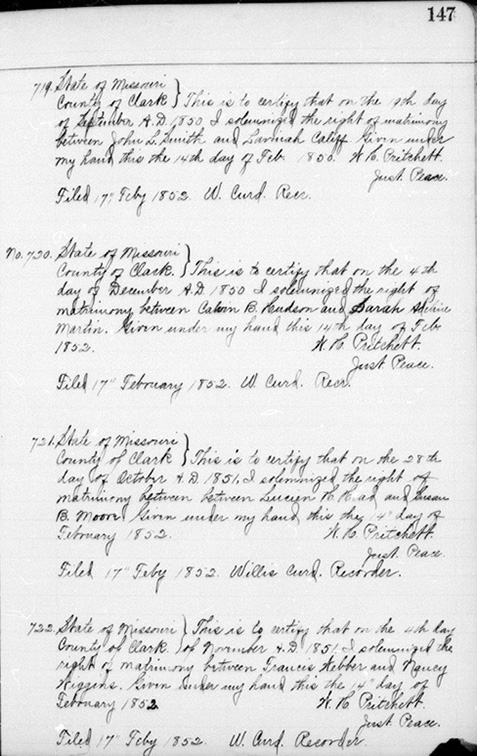 147
719. State of Missouri
County of Clark } This is to certify that on the 19th day
of September A.D. 1850 I solemnized the right of matrimony
between John L. Smith and Lavinah Califf Given under
my hand this the 14th day of Feb. 1850. W. H. Pritchett.
Just Peace.
Filed 17" Feby 1852. W. Curd. Recr.
No. 720. State of Missouri
County of Clark. } This is to certify that on the 4th
day of December A.D. 1850 I solemnized the right of
matrimony between Calvin B. Hudson and Sarah
Martin. Given under my hand this 14th day of Feb.
1852. W. H. Pritchett.
Just Peace.
Filed 17" February 1852. W. Curd. Recr.
721. State of Missouri
County of Clark } This is to certify that on the 28th
day of October A.D. 1851, I solemnized the right of
matrimony between between Lucien H. Head and Susan
B. Moore. Given under my hand this the 14" day of
February 1852. W. H. Pritchett.
Just Peace.
Filed 17" Feby 1852. Willis Curd. Recorder.
722. State of Missouri } This is to certify that on the 4th day
County of Clark } of November A.D. 1851 I solemnized the
right of matrimony between Francis Webber and Nancy
Wiggins. Given under my hand this the 14" day of
February 1852 W. H. Pritchett.
Just Peace.
Filed 17" Feby 1852. W. Curd Recorder